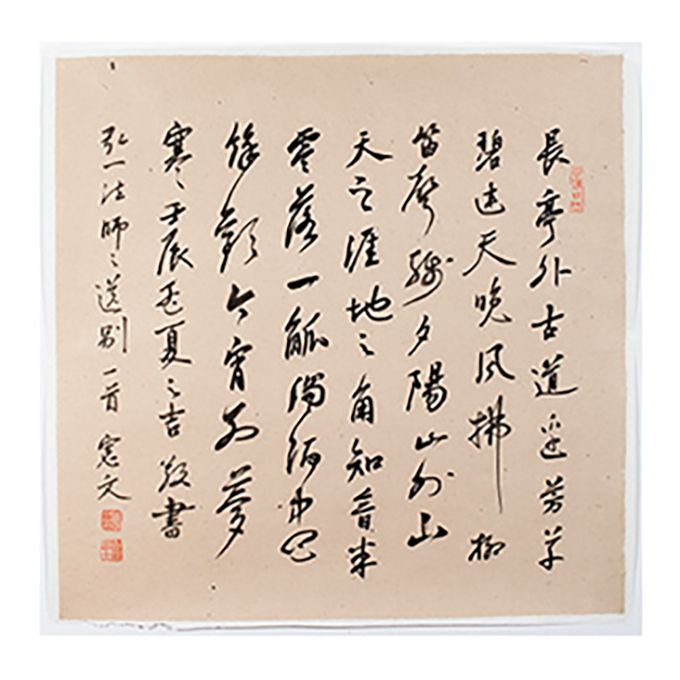 長亭外古道邊芳草
碧連天晚風拂柳
笛聲殘夕陽山外山
天之涯地之角知音半
零落一觚濁酒盡
餘歡今宵別夢
寒壬辰孟夏之吉敬書
弘一法師之送別一首憲文